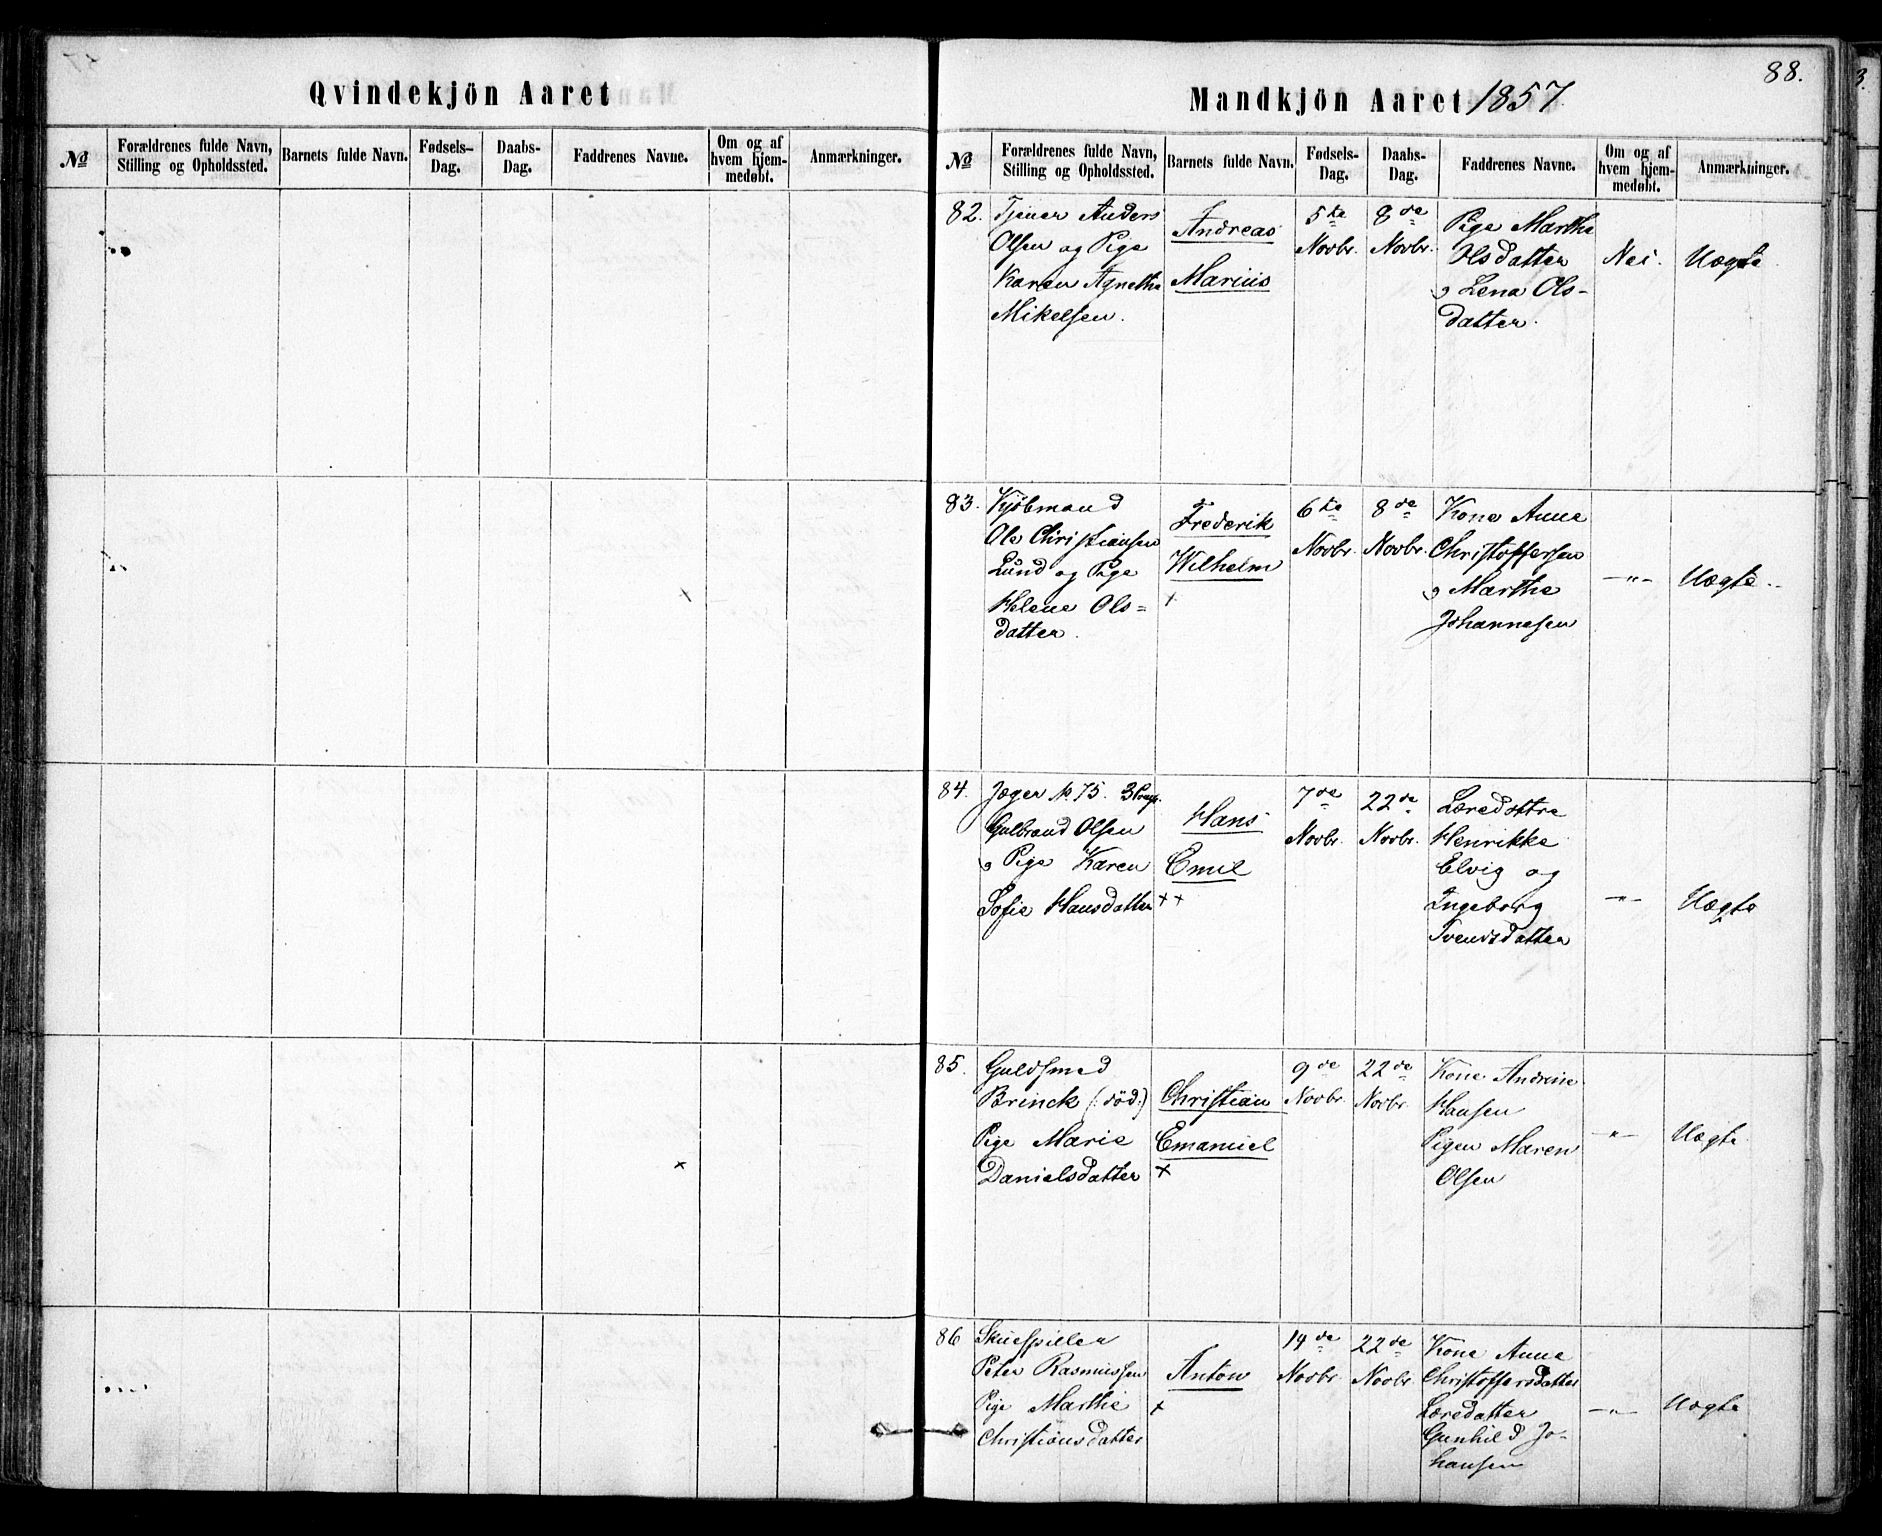 88.
Qvindekjön Aaret
№
Forældrenes fulde Navn,
Stilling og Opholdssted.
Barnets fulde Navn.
Fødsels-
Dag.
Daabs-
Dag.
Faddrenes Navne.
Om og af
hvem hjem-
medøbt.
Anmærkninger.
Mandkjön Aaret 1857
№
Forældrenes fulde Navn,
Stilling og Opholdssted.
Barnets fulde Navn.
Fødsels-
Dag.
Daabs-
Dag.
Faddrenes Navne.
Om og af
hvem hjem-
medøbt.
Anmærkninger.
82.
Tjener Anders
Olsen og Pige
Karen Agnethe
Mikelsen.
Andreas
Marius
5te
Novbr.
8de
Novbr.
Pige Marthe
Olsdatter
og Lena Ols-
datter.
Nei.
Uægte
83.
Kjöbmand
Ole Christiansen
Lund og Pige
Helene Ols=
datter.
Frederik
Wilhelm
+
6te
Novbr.
8de
Novbr.
Kone Anne
Christoffersen
og Marthe
Johannesen
—"—
Uægte
84.
Jæger No 75. 3 Comp.
Gulbrand Olsen
og Pige Karen
Sofie Hansdatter
Hans
Emil
++
7de
Novbr.
22de
Novbr.
Læredøttre
Henrikke
Elvig og
Ingeborg
Svendsdatter
—"—
Uægte
85.
Guldsmed
Brinck (: död:)
Pige Marie
Danielsdatter
Christian
Emanuel
+
9de
Novbr.
22de
Novbr.
Kone Andrine
Hansen
Pigen Maren
Olsen
—"—
Uægte
86
Skuespiller
Peter Rasmussen
Pige Marthe
Christiansdatter
Anton
+
14de
Novbr.
22de
Novbr.
Kone Anne
Christoffersdatter
Læredatter
Gunhild Jo-
hansen
—"—
Uægte